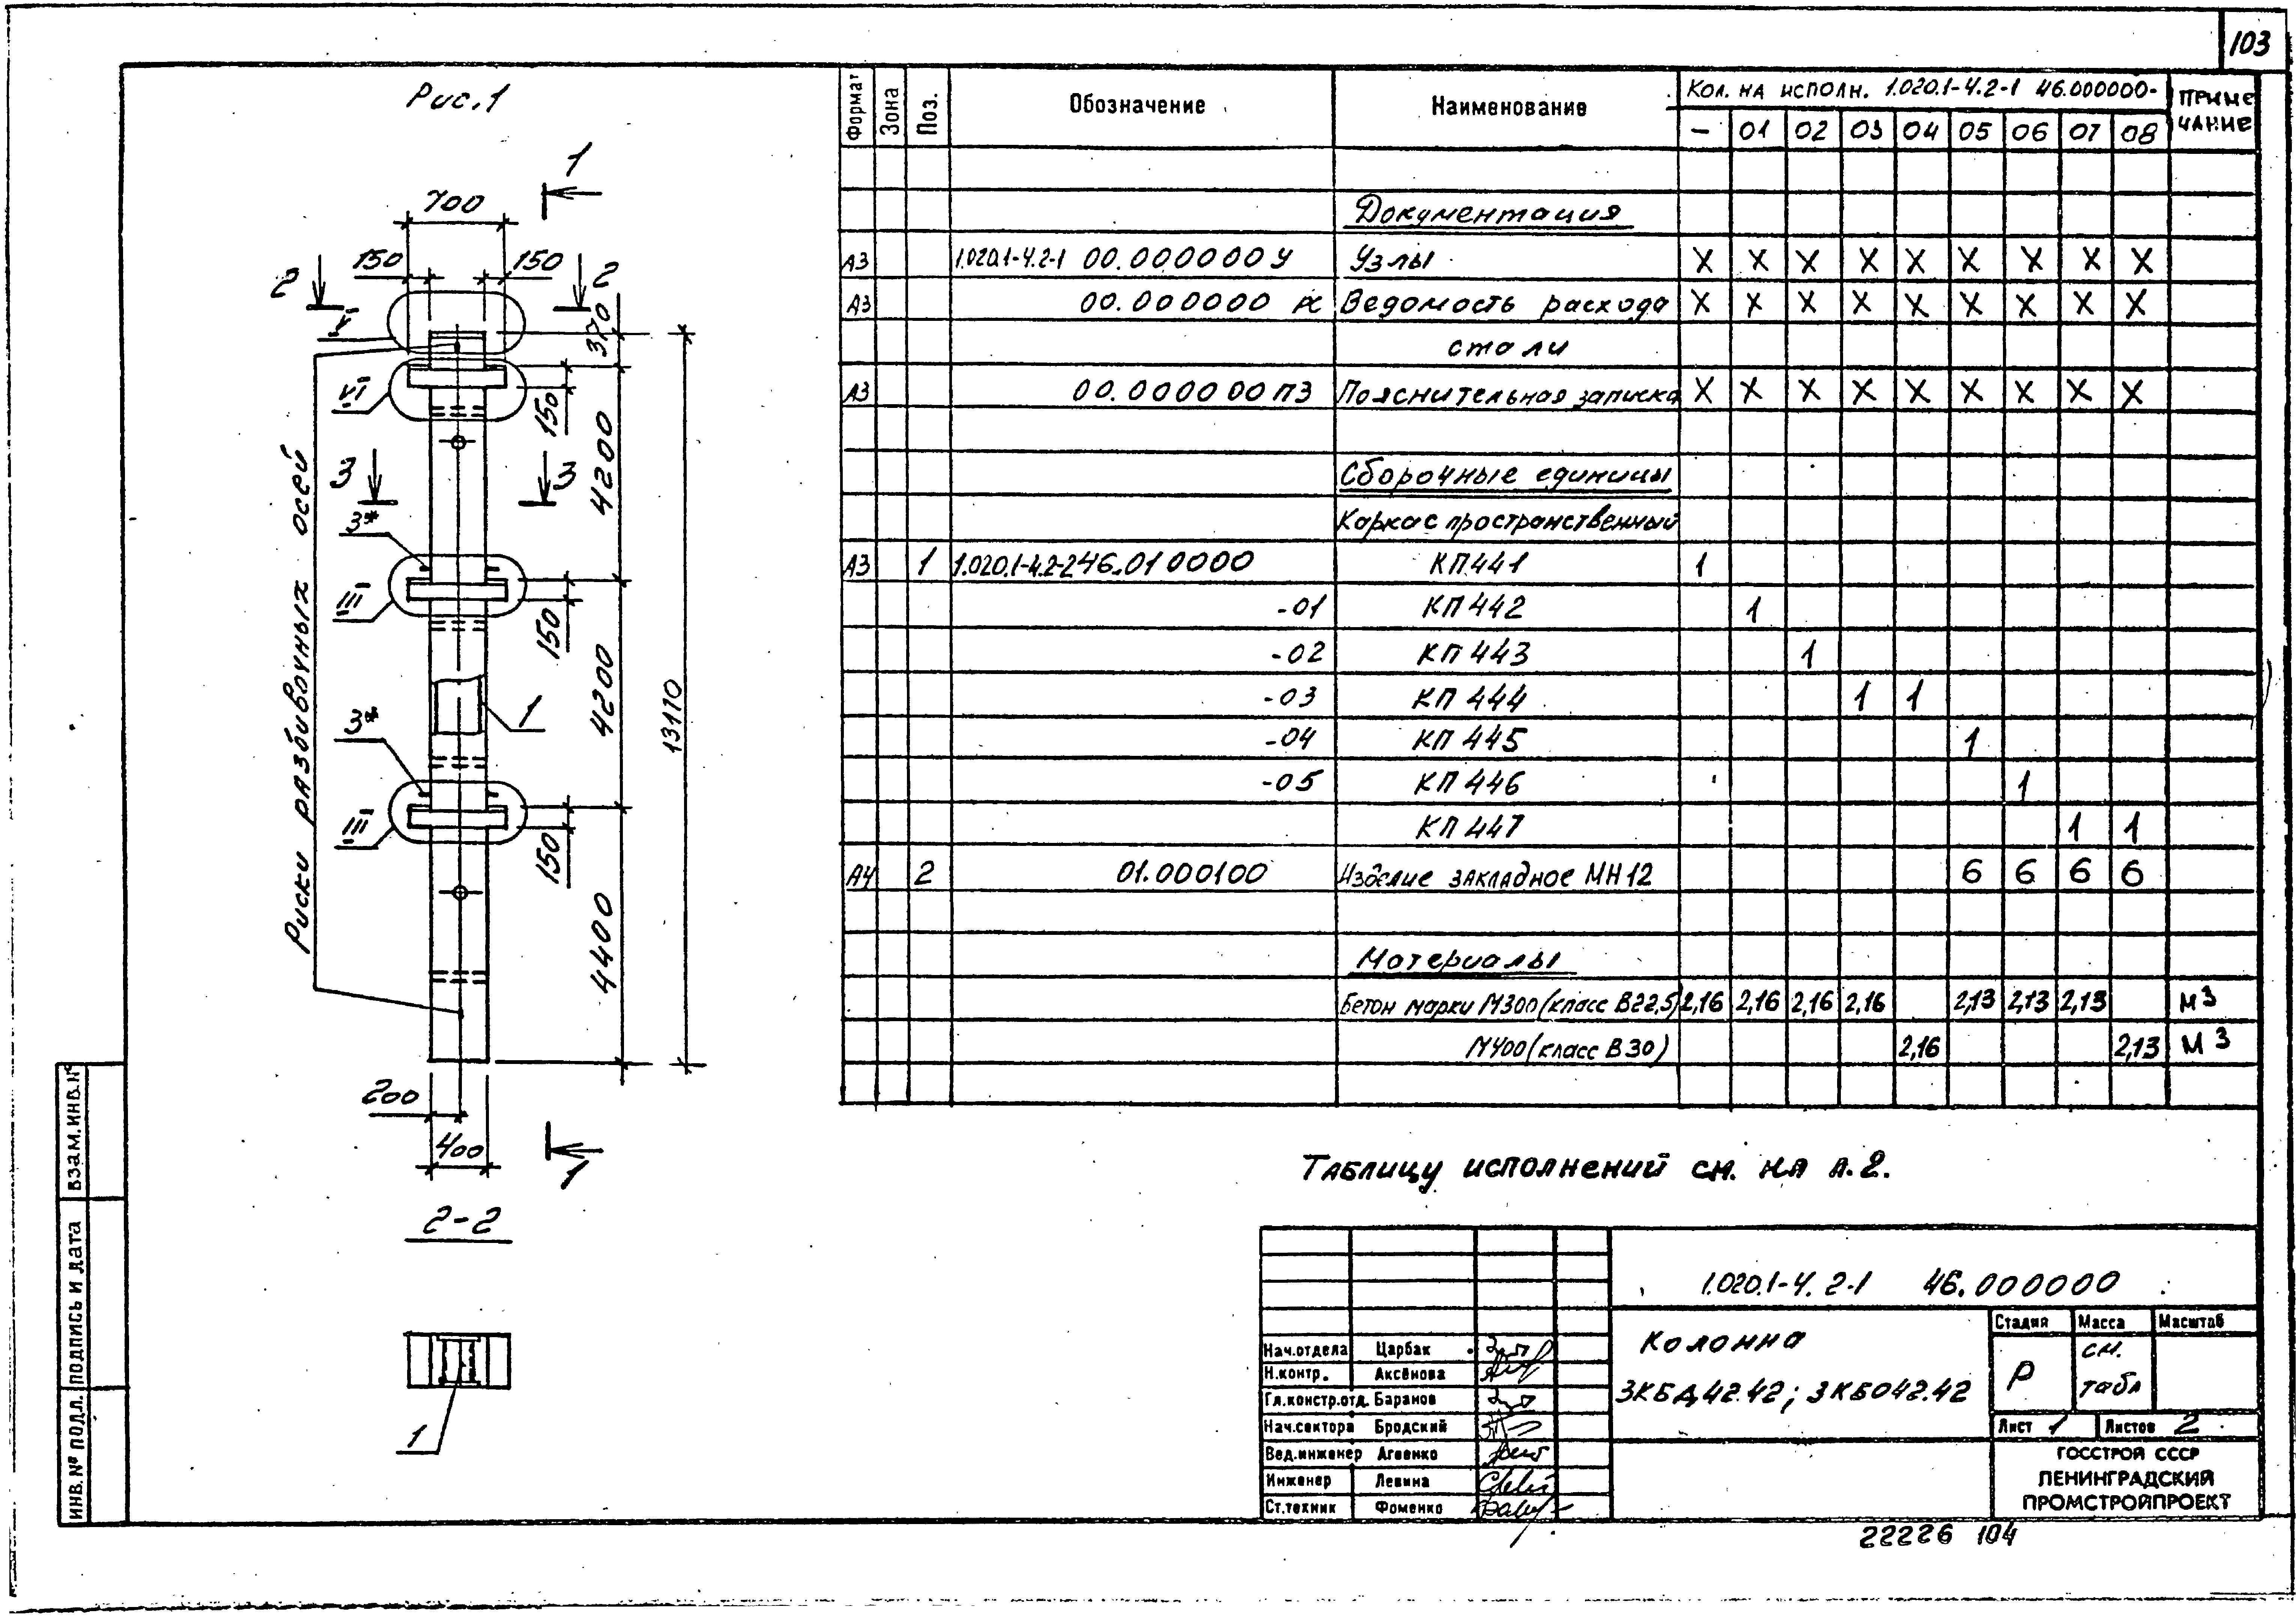 103
Рис.1
1
700
150
150
2
2
V
370
VI
150
4200
3
3
3*
III
150
4200
13170
1
3*
III
150
4400
Риски разбивочных осей
200
400
1
2-2
1
Формат Зона Поз. Обозначение Наименование Кол. на исполн. 1.020.1-4.2-1 46.000000- Приме
чание
- 01 02 03 04 05 06 07 08
Документация
А3 1.020.1-4.2-1 00.000000У Узлы X X X X X X X X X
А3 00.000000 Ведомость расхода X X X X X X X X X
стали
А3 00.000000ПЗ Пояснительная записка X X X X X X X X X
Сборочные единицы
Каркас пространственный
А3 1 1.020.1-4.2-2 46.010000 КП441 1
-01 КП442 1
-02 КП443 1
-03 КП444 1 1
-04 КП445 1
-05 КП446 1
КП447 1 1
А4 2 01.000100 Изделие закладное МН12 6 6 6 6
Материалы
Бетон марки М300 (класс В22,5) 2,16 2,16 2,16 2,16 2,13 2,13 2,13 м3
М400 (класс В30) 2,16 2,13 м3
Таблицу исполнений см. на л.2.
1.020.1-4.2-1 46.000000
Колонна
3КБД42.42; 3КБО42.42
Стадия Масса Масштаб
Р см.
табл
Лист 1 Листов 2
ГОССТРОЙ СССР
ЛЕНИНГРАДСКИЙ
ПРОМСТРОЙПРОЕКТ
Нач.отдела Царбак
Н.контр. Аксёнова
Гл.констр.отд. Баранов
Нач.сектора Бродский
Вед.инженер Агеенко
Инженер Левина
Ст.техник Фоменко
ИНВ.№ ПОДЛ. ПОДПИСЬ И ДАТА ВЗАМ.ИНВ.№
22226 104